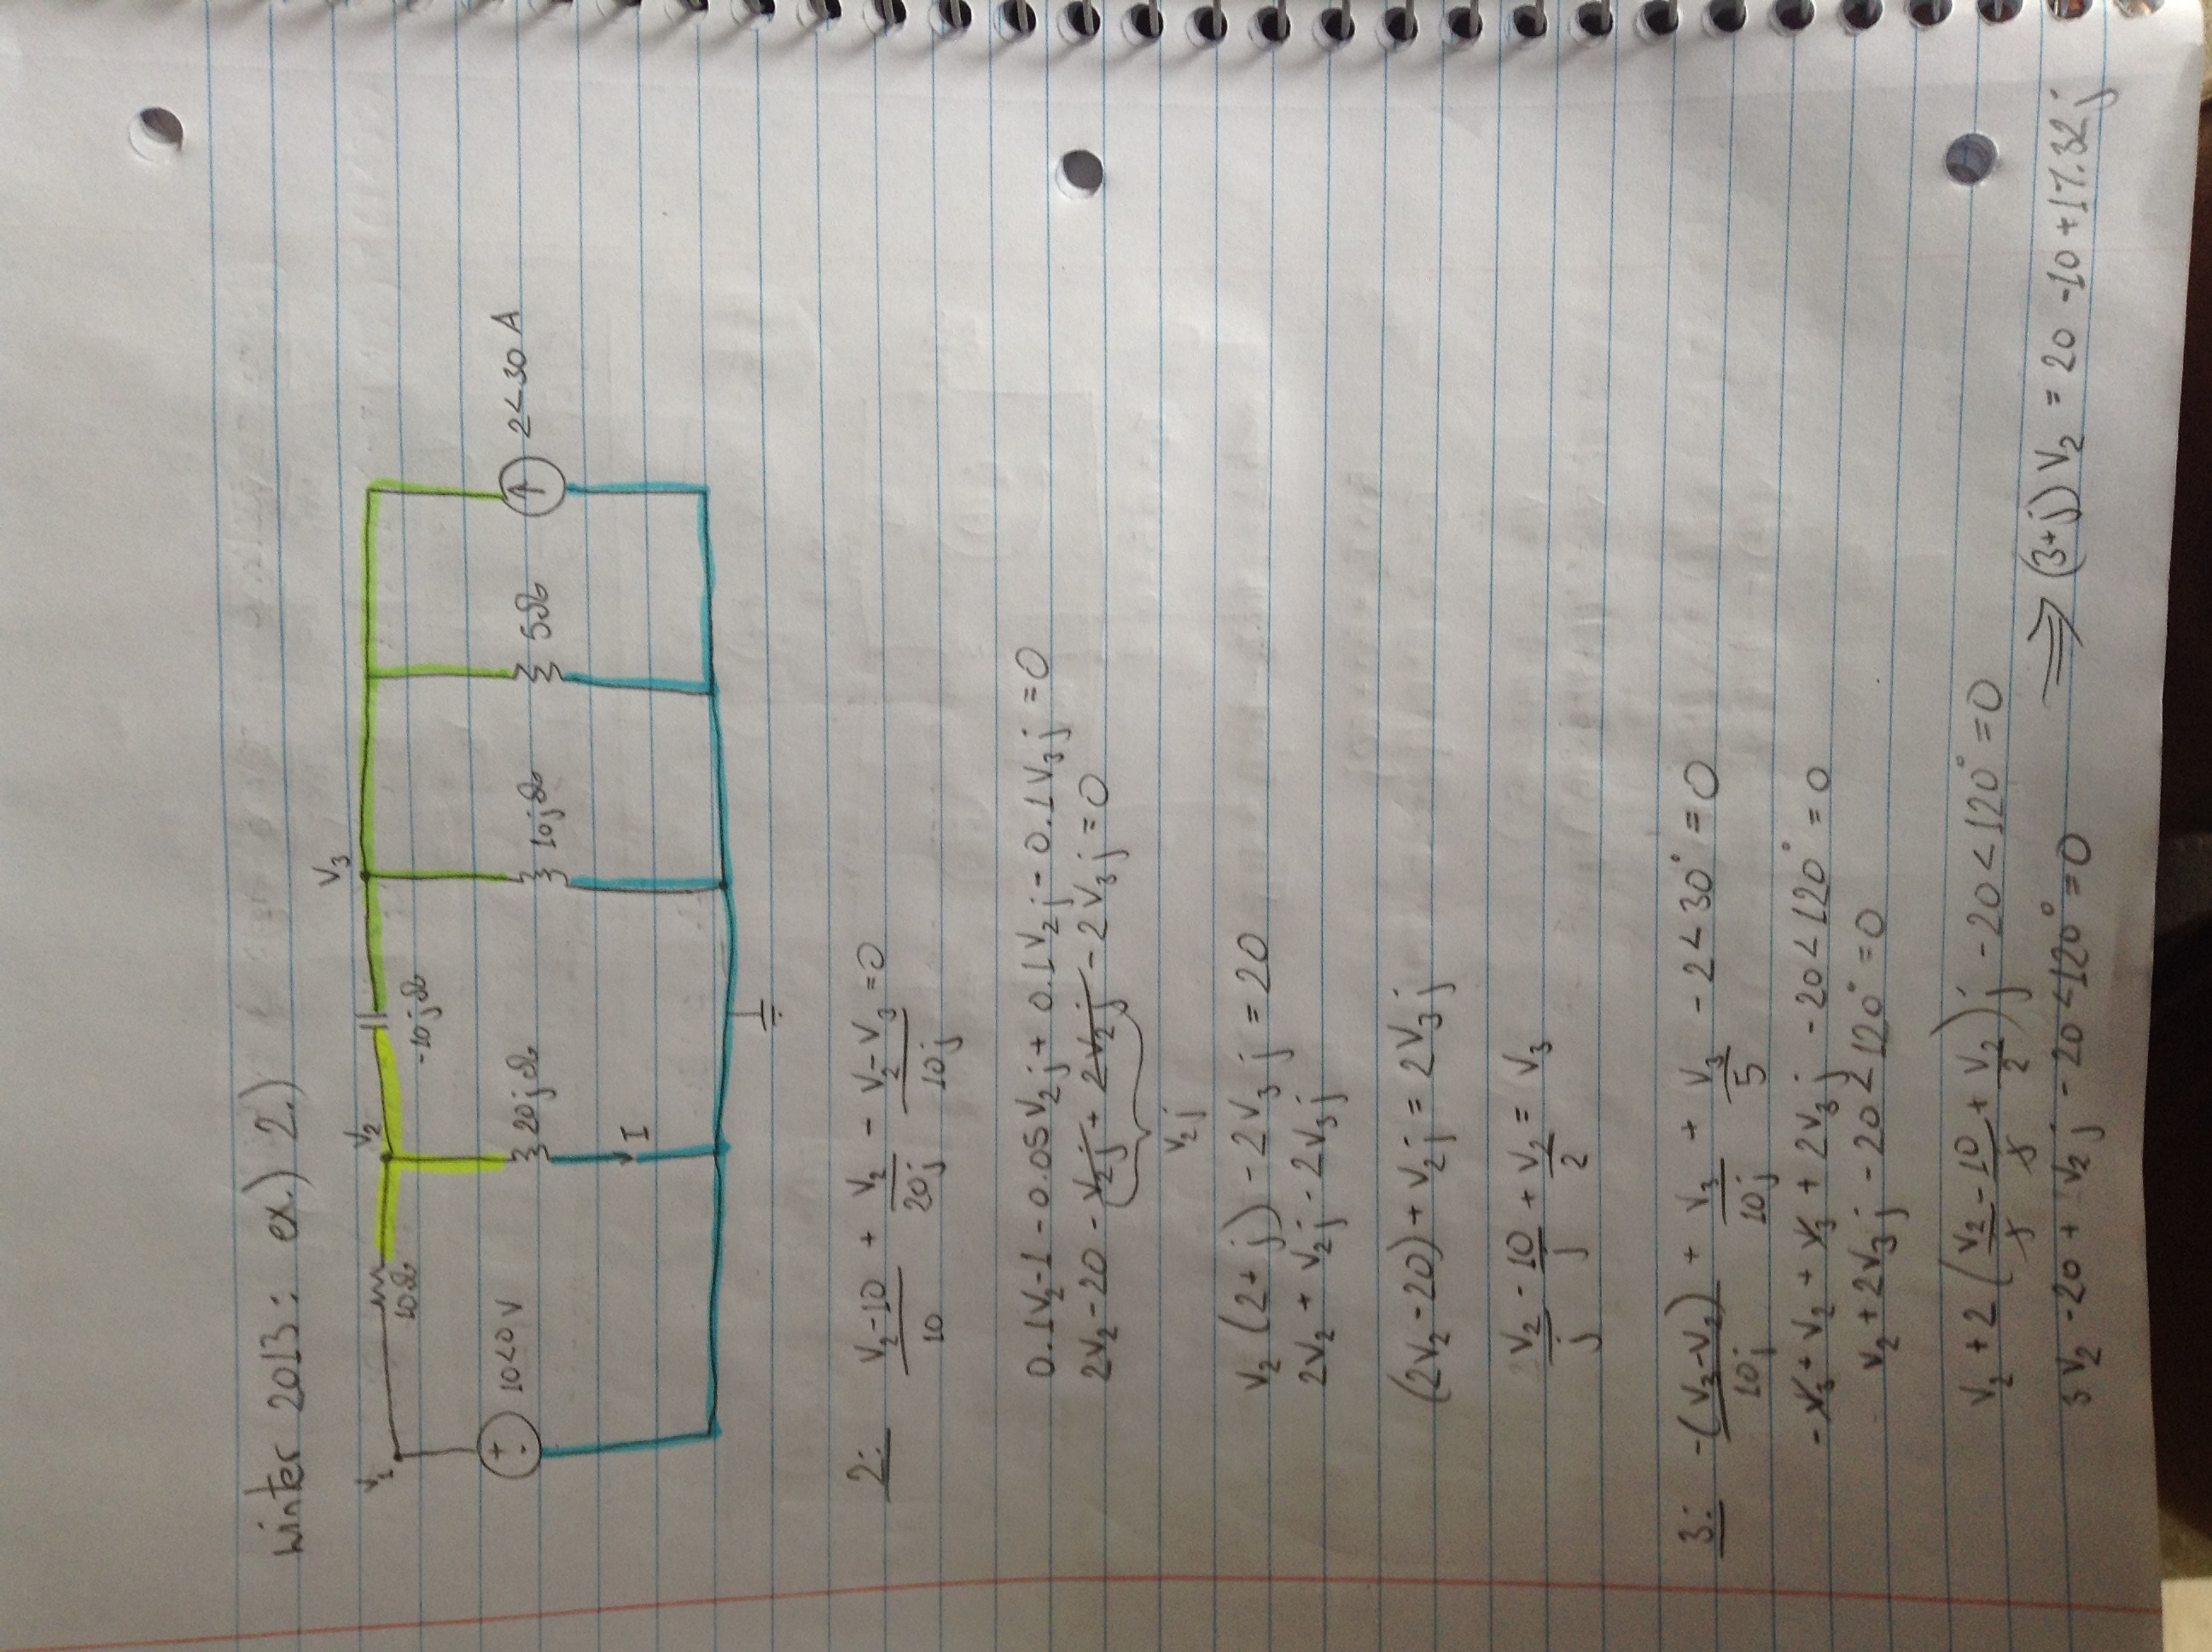 winter 2013: ex.) 2.)
V₁
V₂
V₃
10Ω
-10jΩ
+
-
10<0 V
20jΩ
10jΩ
5Ω
2<30 A
I
2: (V₂-10)/10 + V₂/20j - (V₂-V₃)/10j = 0
0.1V₂-1-0.05V₂j+0.1V₂j-0.1V₃j=0
2V₂-20-V₂j+2V₂j-2V₃j=0
V₂j
V₂(2+j)-2V₃j=20
2V₂+V₂j-2V₃j
(2V₂-20)+V₂j=2V₃j
V₂/j - 10/j + V₂/2 = V₃
3: -(V₃-V₂)/10j + V₃/10j + V₃/5 - 2<30° = 0
-V₃+V₂+V₃+2V₃j-20<120°=0
V₂+2V₃j-20<120°=0
V₂+2(V₂/j - 10/j + V₂/2)j-20<120°=0
3V₂-20+V₂j-20<120°=0 ⇒ (3+j)V₂=20-10+17.32j